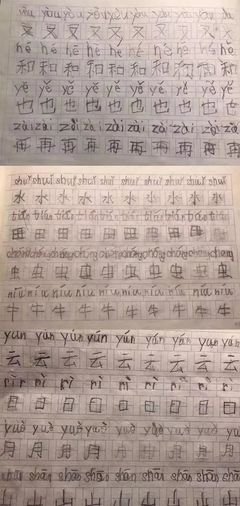 yòu yòu yòu yòu yòu yòu yòu yòu
又 又 又 又 又 又 又 又 又
hé hé hé hé hé hé hé hé hé
和 和 和 和 和 和 和 和 和
yě yě yě yě yě yě yě yě yě
也 也 也 也 也 也 也 也 也
zài zài zài zài zài zài zài zài zài
再 再 再 再 再 再 再 再 再
shuǐ shuǐ shuǐ shuǐ shuǐ shuǐ shuǐ shuǐ shuǐ
水 水 水 水 水 水 水 水 水
tián tián tián tián tián tián tián tián tián
田 田 田 田 田 田 田 田 田
chóng chóng chóng chóng chóng chóng chóng chóng
虫 虫 虫 虫 虫 虫 虫 虫 虫
niú niú niú niú niú niú niú niú niú
牛 牛 牛 牛 牛 牛 牛 牛 牛
yún yún yún yún yún yún yún yún yún
云 云 云 云 云 云 云 云 云
rì rì rì rì rì rì rì rì rì
日 日 日 日 日 日 日 日 日
yuè yuè yuè yuè yuè yuè yuè yuè
月 月 月 月 月 月 月 月 月
shān shān shān shān shān shān shān shān
山 山 山 山 山 山 山 山 山